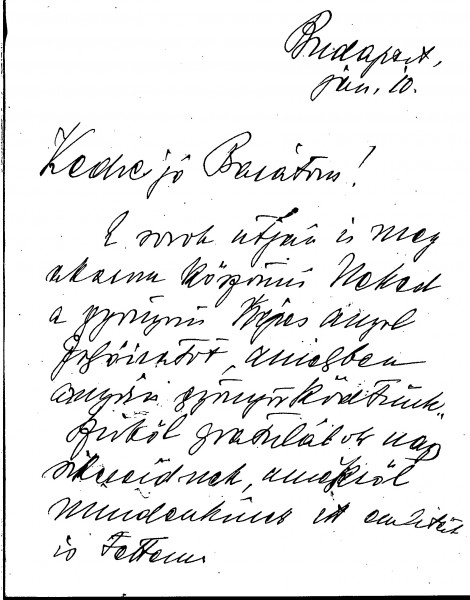 Budapest,
jan. 10.
Kedves jó Barátom!
E sorok útján is meg
akarom köszönni Neked
a gyönyörű Képes angol
folyóiratot, amelyben
annyira gyönyörködtünk.
Szívből gratulálok nagy
sikereidnek, amelyről
mindenkinek itt említést
is tettem.